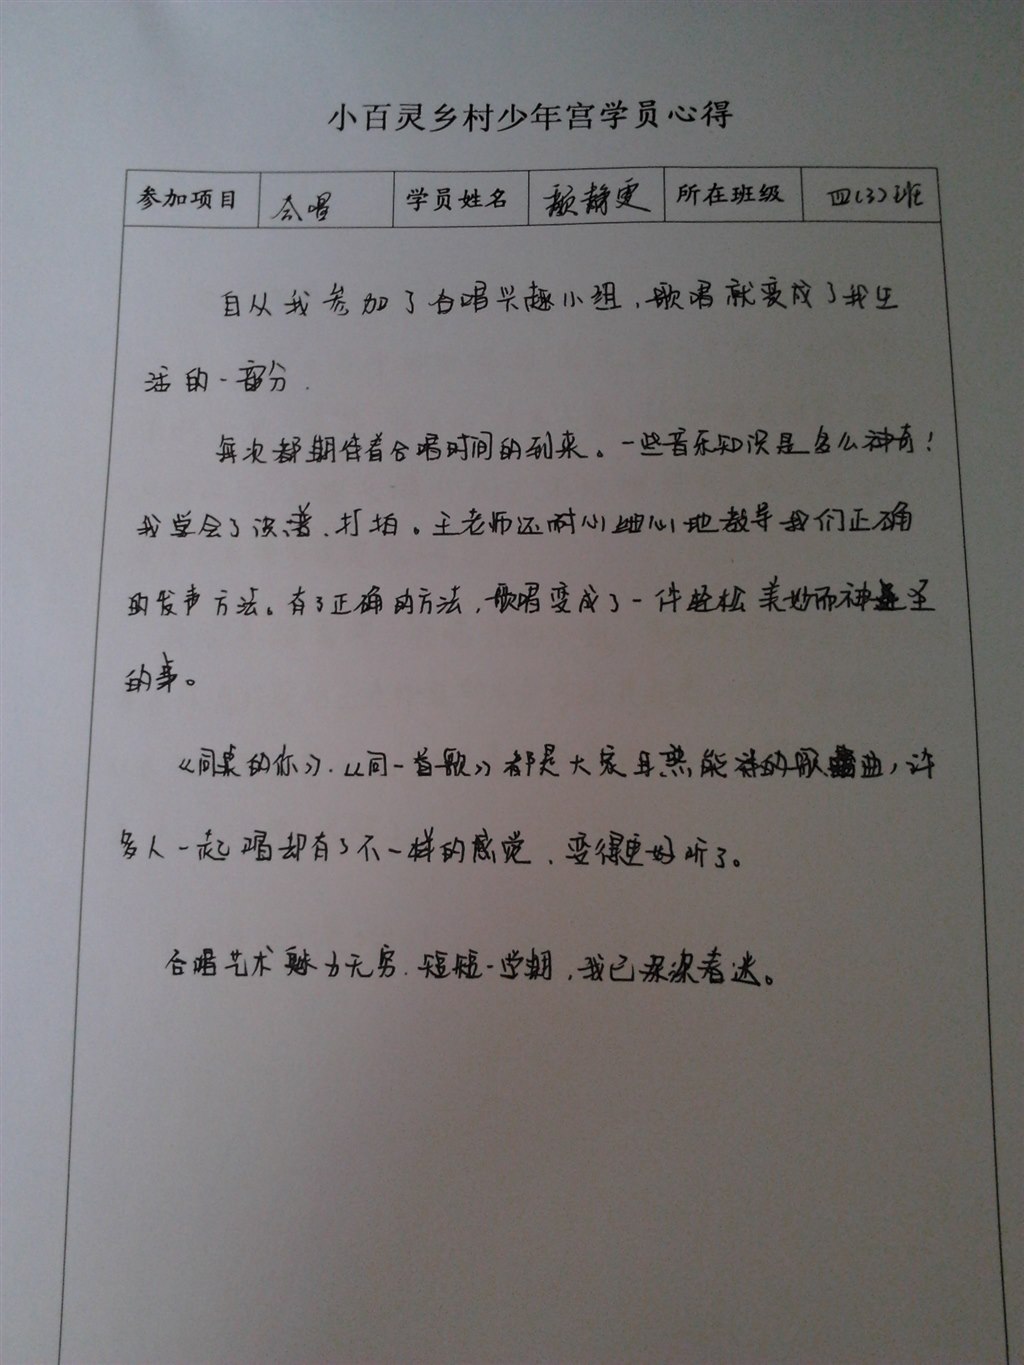 小百灵乡村少年宫学员心得
参加项目 合唱 学员姓名 顾静雯 所在班级 四(3)班
自从我参加了合唱兴趣小组,歌唱就变成了我生
活的一部分.
每次都期待着合唱时间的到来。一些音乐知识是多么神奇!
我学会了识谱、打拍。王老师还耐心细心地教导我们正确
的发声方法。有了正确的方法,歌唱变成了一件轻松美妙而神圣
的事。
《同桌的你》.《同一首歌》都是大家耳熟能详的歌曲,许
多人一起唱却有了不一样的感觉,变得更好听了。
合唱艺术魅力无穷.短短一学期,我已深深着迷。